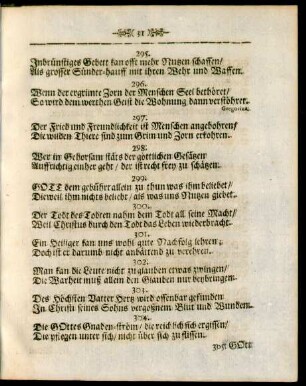 31
295.
Inbrünstiges Gebett kan offt mehr Nutzen schaffen/
Als grosser Sünder-hauff mit ihren Wehr und Waffen.
296.
Wenn der ergrimte Zorn der Menschen Seel bethöret/
So wird dem werthen Geist die Wohnung dann verstöhret.
Gregorius.
297.
Der Fried und Freundlichkeit ist Menschen angebohren/
Die wilden Thiere sind zum Grim und Zorn erkohren.
298.
Wer in Gehorsam stäts der göttlichen Gesätzen
Auffrichtig einher geht / der ist recht frey zu schätzen.
299.
GOTT dem gebührt allein zu thun was ihm beliebet/
Dieweil ihm nichts beliebt/ als was uns Nutzen giebet.
300.
Der Todt des Todten nahm dem Todt all seine Macht/
Weil Christus durch den Todt das Leben wiederbracht.
301.
Ein Heiliger kan uns wohl gute Nachfolg lehren;
Doch ist er darumb nicht anbätend zu verehren.
302.
Man kan die Leute nicht zu glauben etwas zwingen/
Die Warheit muß allein den Glauben nur beybringen.
303.
Des Höchsten Vatter Hertz wird offenbar gefunden
In Christi seines Sohns vergoßnem Blut und Wunden.
304.
Die GOttes Gnaden-ström/ die reichlich sich ergissen/
Die pflegen unter sich/ nicht über sich zu fliessen.
GOtt